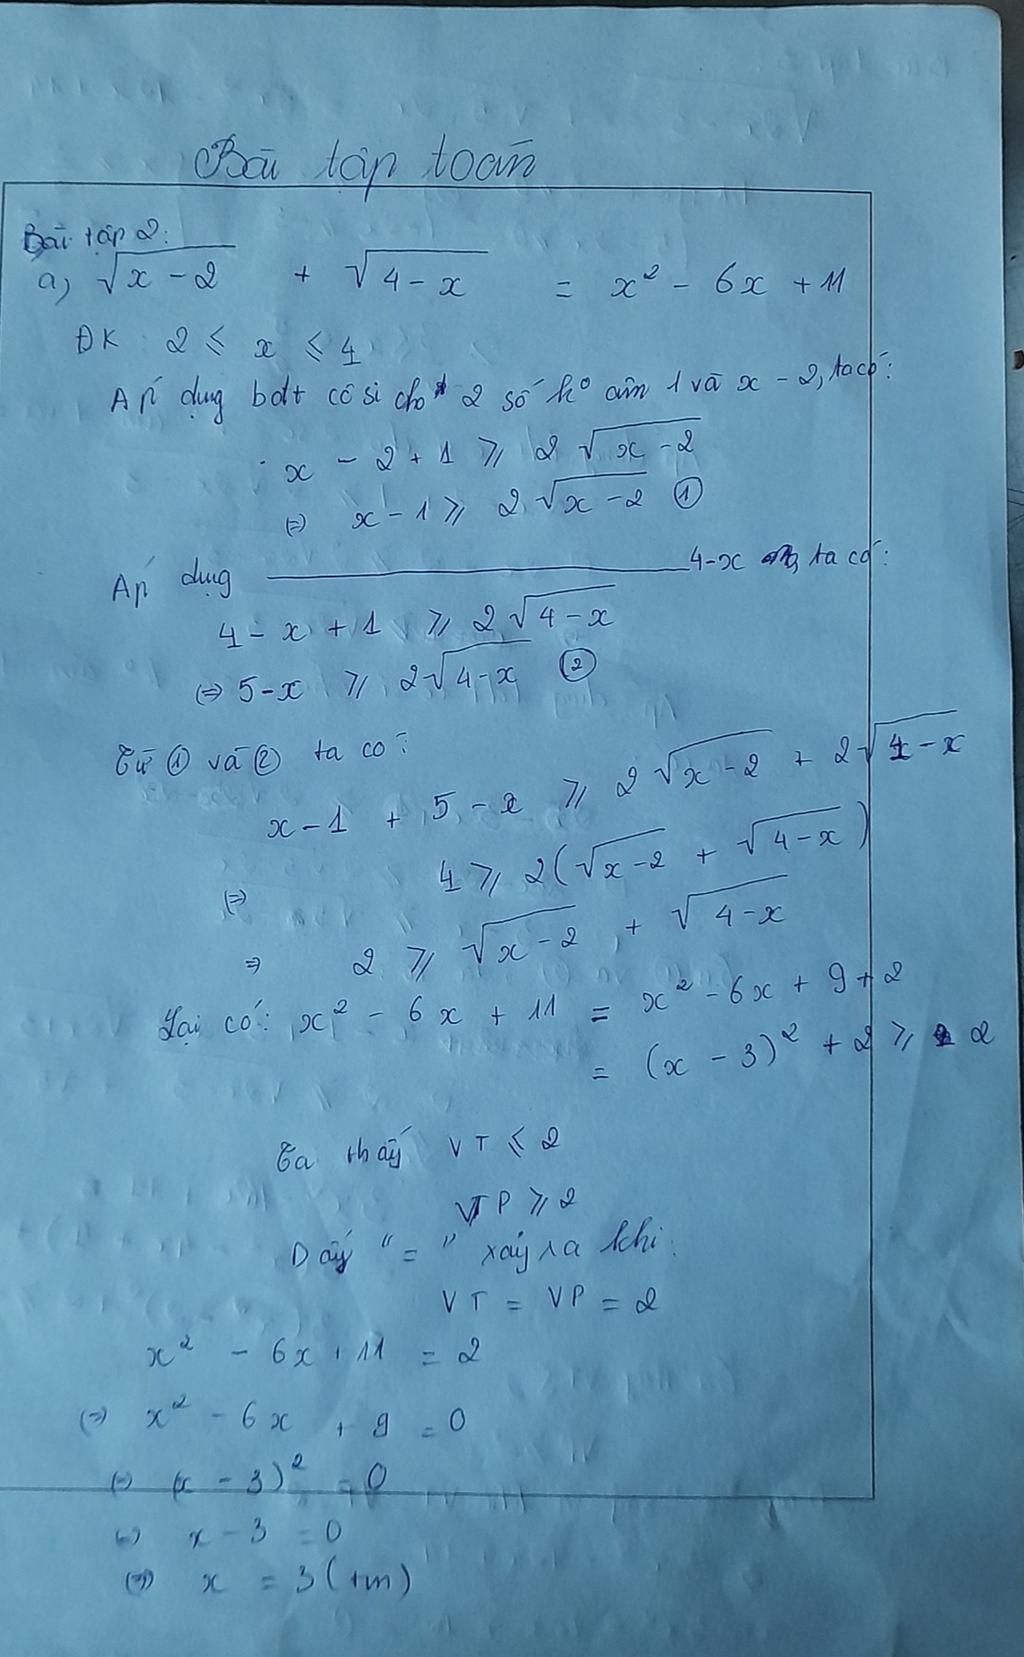 Bài tập toán
Bài tập 2:
a, √(x - 2) + √(4 - x) = x² - 6x + 11
ĐK: 2 ≤ x ≤ 4
Áp dụng bđt cô si cho 2 số k° âm 1 và x - 2, ta có:
x - 2 + 1 ≥ 2√(x - 2)
⇔ x - 1 ≥ 2√(x - 2) ①
Áp dụng ———— 4-x ta có:
4 - x + 1 ≥ 2√(4 - x)
⇔ 5 - x ≥ 2√(4 - x) ②
Từ ① và ② ta có:
x - 1 + 5 - x ≥ 2√(x - 2) + 2√(4 - x)
⇔ 4 ≥ 2(√(x - 2) + √(4 - x))
⇒ 2 ≥ √(x - 2) + √(4 - x)
Lại có: x² - 6x + 11 = x² - 6x + 9 + 2
= (x - 3)² + 2 ≥ 2
Ta thấy VT ≤ 2
VP ≥ 2
Dấy "=" xảy ra khi:
VT = VP = 2
x² - 6x + 11 = 2
⇔ x² - 6x + 9 = 0
⇔ (x - 3)² = 0
⇔ x - 3 = 0
⇔ x = 3 (tm)